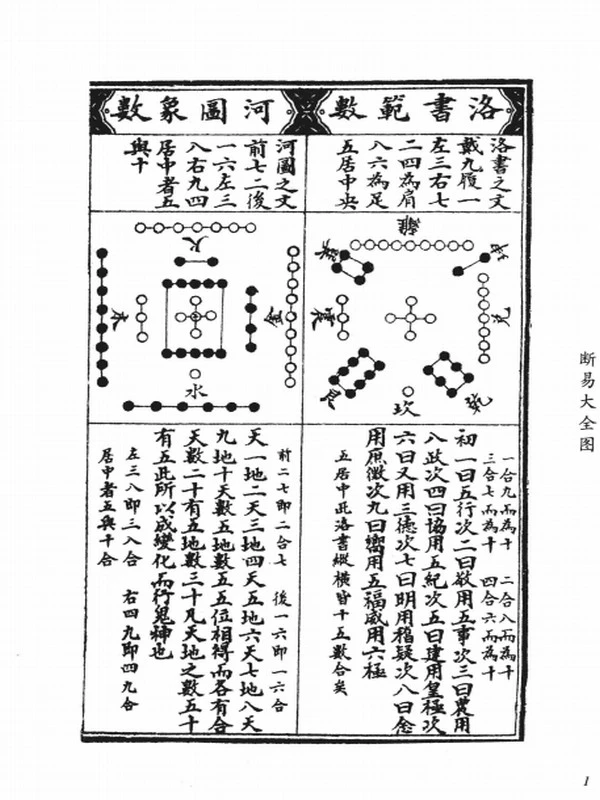 洛書範數
洛書之文
戴九履一
左三右七
二四為肩
八六為足
五居中央
離
坤
巽
兌
震
乾
艮
坎
一合九而為十 二合八而為十
三合七而為十 四合六而為十
初一曰五行次二曰敬用五事次三曰農用
八政次四曰協用五紀次五曰建用皇極次
六曰又用三德次七曰明用稽疑次八曰念
用庶徵次九曰嚮用五福威用六極
五居中此洛書縱橫皆十五數合矣
河圖象數
河圖之文
前七二後
一六左三
八右九四
居中者五
與十
火
金
木
水
前二七即二合七 後一六即一六合
天一地二天三地四天五地六天七地八天
九地十天數五地數五五位相得而各有合
天數二十有五地數三十凡天地之數五十
有五此所以成變化而行鬼神也
左三八即三八合 右四九即四九合
居中者五與十合
断易大全图
1